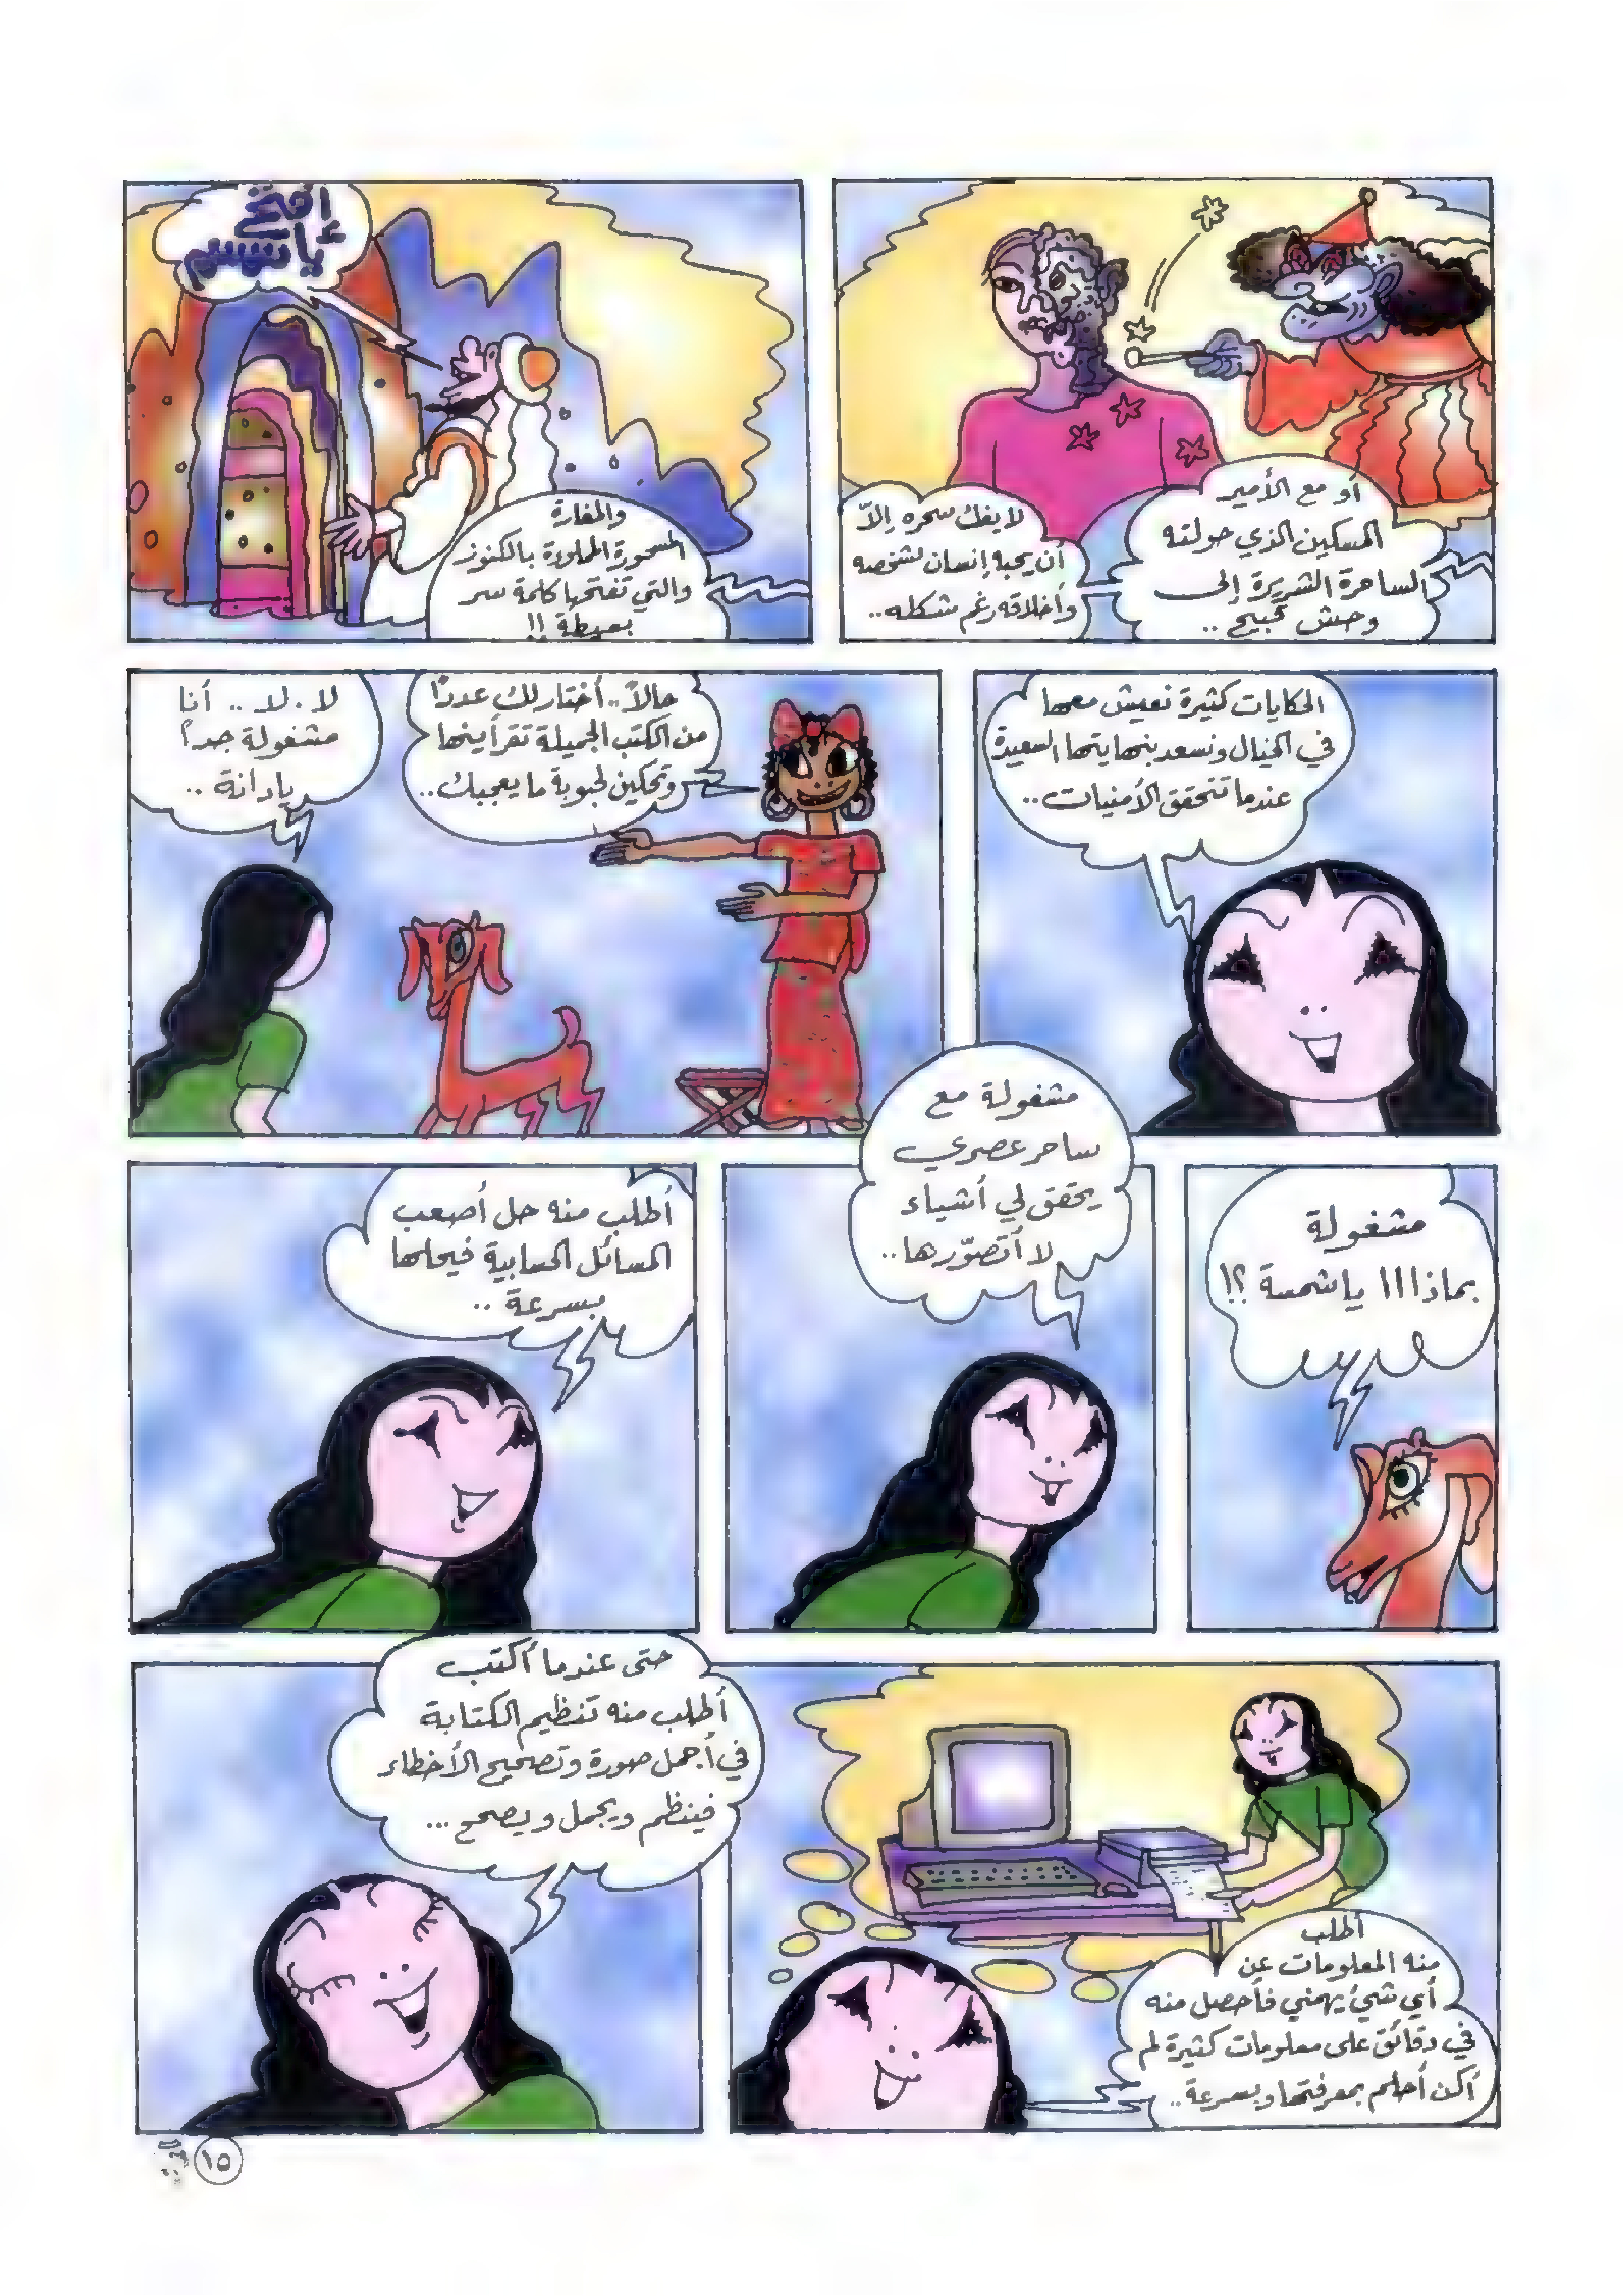 أو مع الأمير
المسكين الذي حولته
الساحرة الشريرة إلى
وحش قبيح ..
لا يفك سحره إلاّ
أن يحبه إنسان لشخصه
وأخلاقه رغم شكله..
إفتحي
ياسمسم
والمغارة
المسحورة المملوءة بالكنوز
والتي تفتحها كلمة سر
بسيطة !!
الحكايات كثيرة نعيش معها
في الخيال ونسعد بنهايتها السعيدة
عندما تتحقق الأمنيات..
حالاً.. أختار لك عددًا
من الكتب الجميلة تقرأينها
وتحكين لحبوبة ما يعجبك..
لا . لا .. أنا
مشغولة جداً
يا دانة ..
مشغولة
بماذاااا ياشمسة ؟!
مشغولة مع
ساحر عصري
يحقق لي أشياء
لا أتصوّرها..
أطلب منه حل أصعب
المسائل الحسابية فيحلها
بسرعة ..
أطلب
منه المعلومات عن
أي شئ يهمني فأحصل منه
في دقائق على معلومات كثيرة لم
أكن أحلم بمعرفتها وبسرعة..
حتى عندما أكتب
أطلب منه تنظيم الكتابة
في أجمل صورة وتصحيح الأخطاء
فينظم ويجمل ويصحح ...
١٥